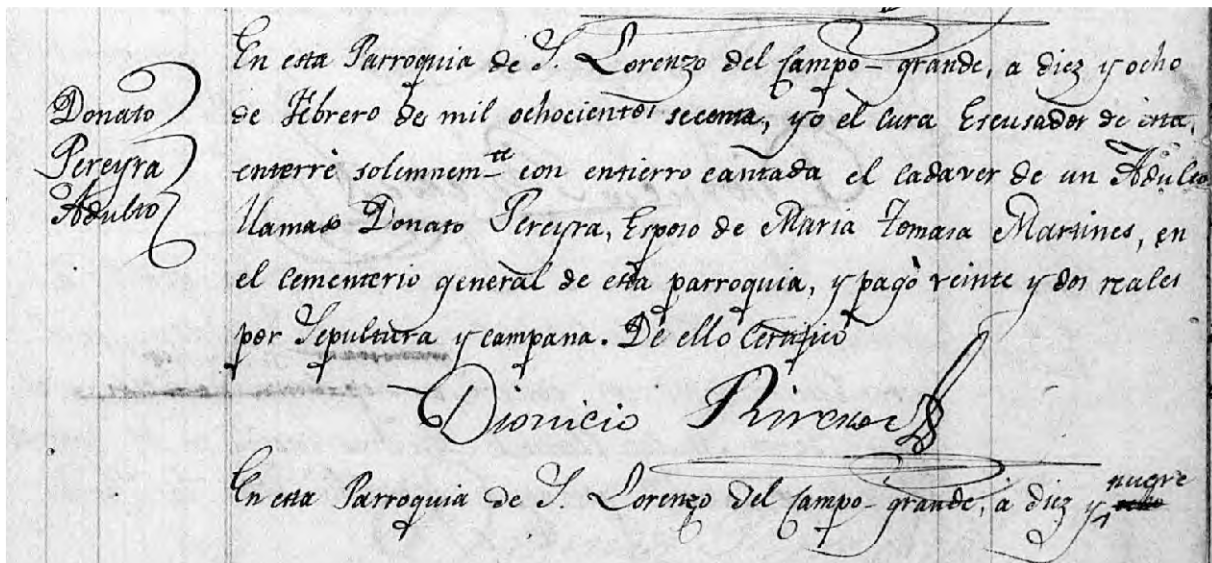 Donato
Pereyra
Adulto
En esta Parroquia de S. Lorenzo del Campo-grande, a diez y ocho
de Febrero de mil ochocientos secenta, yo el Cura Escusador de esta,
enterré solemnemte con entierro cantada el cadaver de un Adulto
llamado Donato Pereyra, Esposo de Maria Tomasa Martines, en
el cementerio general de esta parroquia, y pagò veinte y dos reales
por Sepultura y campana. De ello Certifico
Dionicio
En esta Parroquia de S. Lorenzo del Campo-grande, à diez y nueve